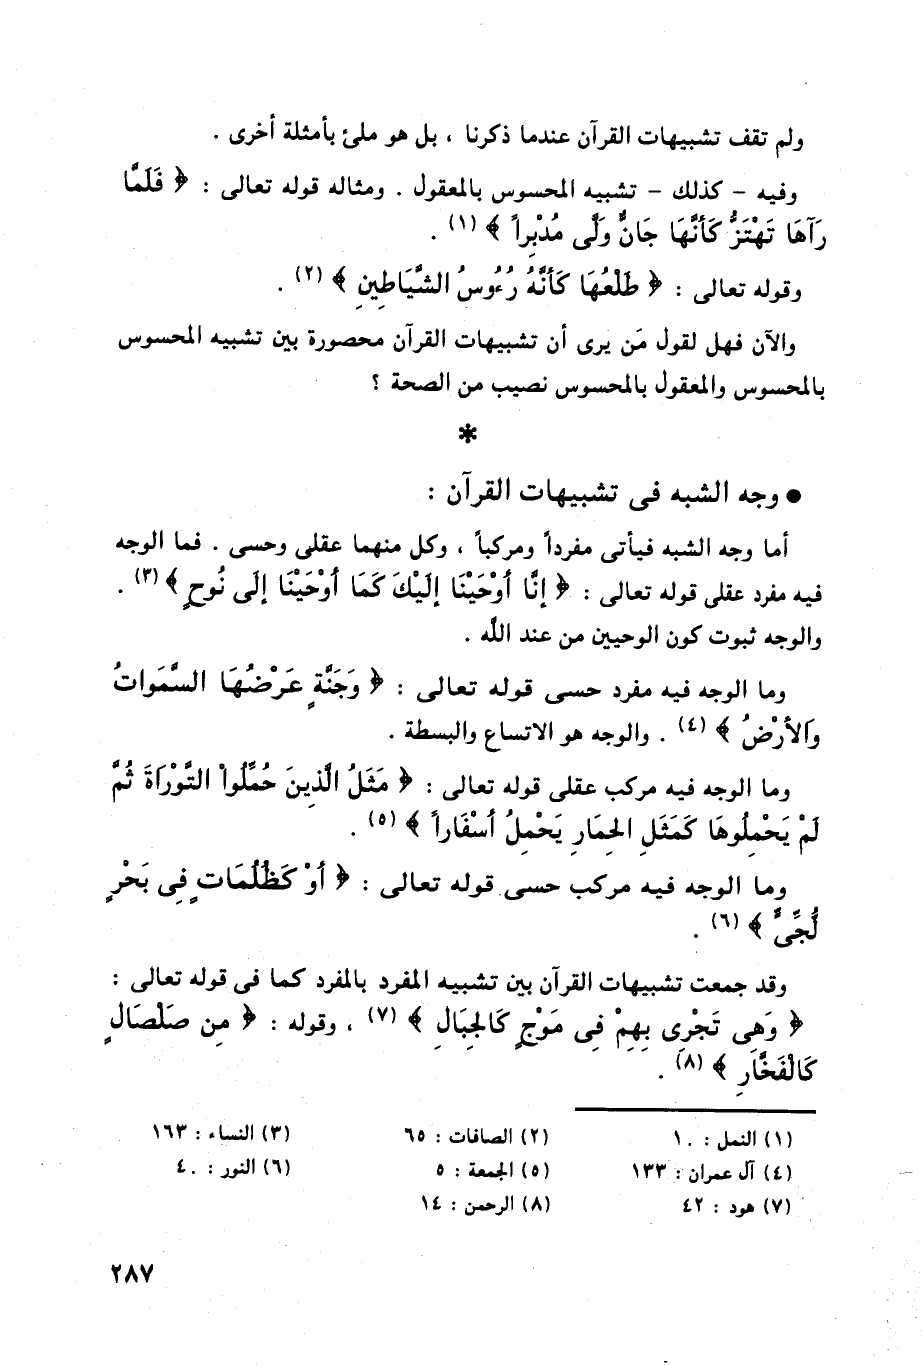 ولم تقف تشبيهات القرآن عندما ذكرنا ، بل هو ملئ بأمثلة أخرى .
وفيه – كذلك – تشبيه المحسوس بالمعقول . ومثاله قوله تعالى : ﴿ فَلَمَّا
رَآهَا تَهْتَزُّ كَأنَّهَا جَانٌّ وَلَّى مُدْبِراً ﴾ (١) .
وقوله تعالى : ﴿ طَلْعُهَا كَأنَّهُ رُءُوسُ الشَّيَاطِينِ ﴾ (٢) .
والآن فهل لقول مَن يرى أن تشبيهات القرآن محصورة بين تشبيه المحسوس
بالمحسوس والمعقول بالمحسوس نصيب من الصحة ؟
*
● وجه الشبه فى تشبيهات القرآن :
أما وجه الشبه فيأتى مفرداً ومركباً ، وكل منهما عقلى وحسى . فما الوجه
فيه مفرد عقلى قوله تعالى : ﴿ إنَّا أوْحَيْنَا إلَيْكَ كَمَا أوْحَيْنَا إلَى نُوحٍ ﴾ (٣) .
والوجه ثبوت كون الوحيين من عند اللَّه .
وما الوجه فيه مفرد حسى قوله تعالى : ﴿ وَجَنَّةٍ عَرْضُهَا السَّمَواتُ
وَالأرْضُ ﴾ (٤) . والوجه هو الاتساع والبسطة .
وما الوجه فيه مركب عقلى قوله تعالى : ﴿ مَثَلُ الَّذِينَ حُمِّلُواْ التَّوْرَاةَ ثُمَّ
لَمْ يَحْمِلُوهَا كَمَثَلِ الحِمَارِ يَحْمِلُ أسْفَاراً ﴾ (٥) .
وما الوجه فيه مركب حسى قوله تعالى : ﴿ أوْ كَظُلُمَاتٍ فِى بَحْرٍ
لُّجِّىٍّ ﴾ (٦) .
وقد جمعت تشبيهات القرآن بين تشبيه المفرد بالمفرد كما فى قوله تعالى :
﴿ وَهِى تَجْرِى بِهِمْ فِى مَوْجٍ كَالجِبَالِ ﴾ (٧) ، وقوله : ﴿ مِن صَلْصَالٍ
كَالْفَخَّارِ ﴾ (٨) .
(١) النمل : ١٠ (٢) الصافات : ٦٥ (٣) النساء : ١٦٣
(٤) آل عمران : ١٣٣ (٥) الجمعة : ٥ (٦) النور : ٤٠
(٧) هود : ٤٢ (٨) الرحمن : ١٤
٢٨٧